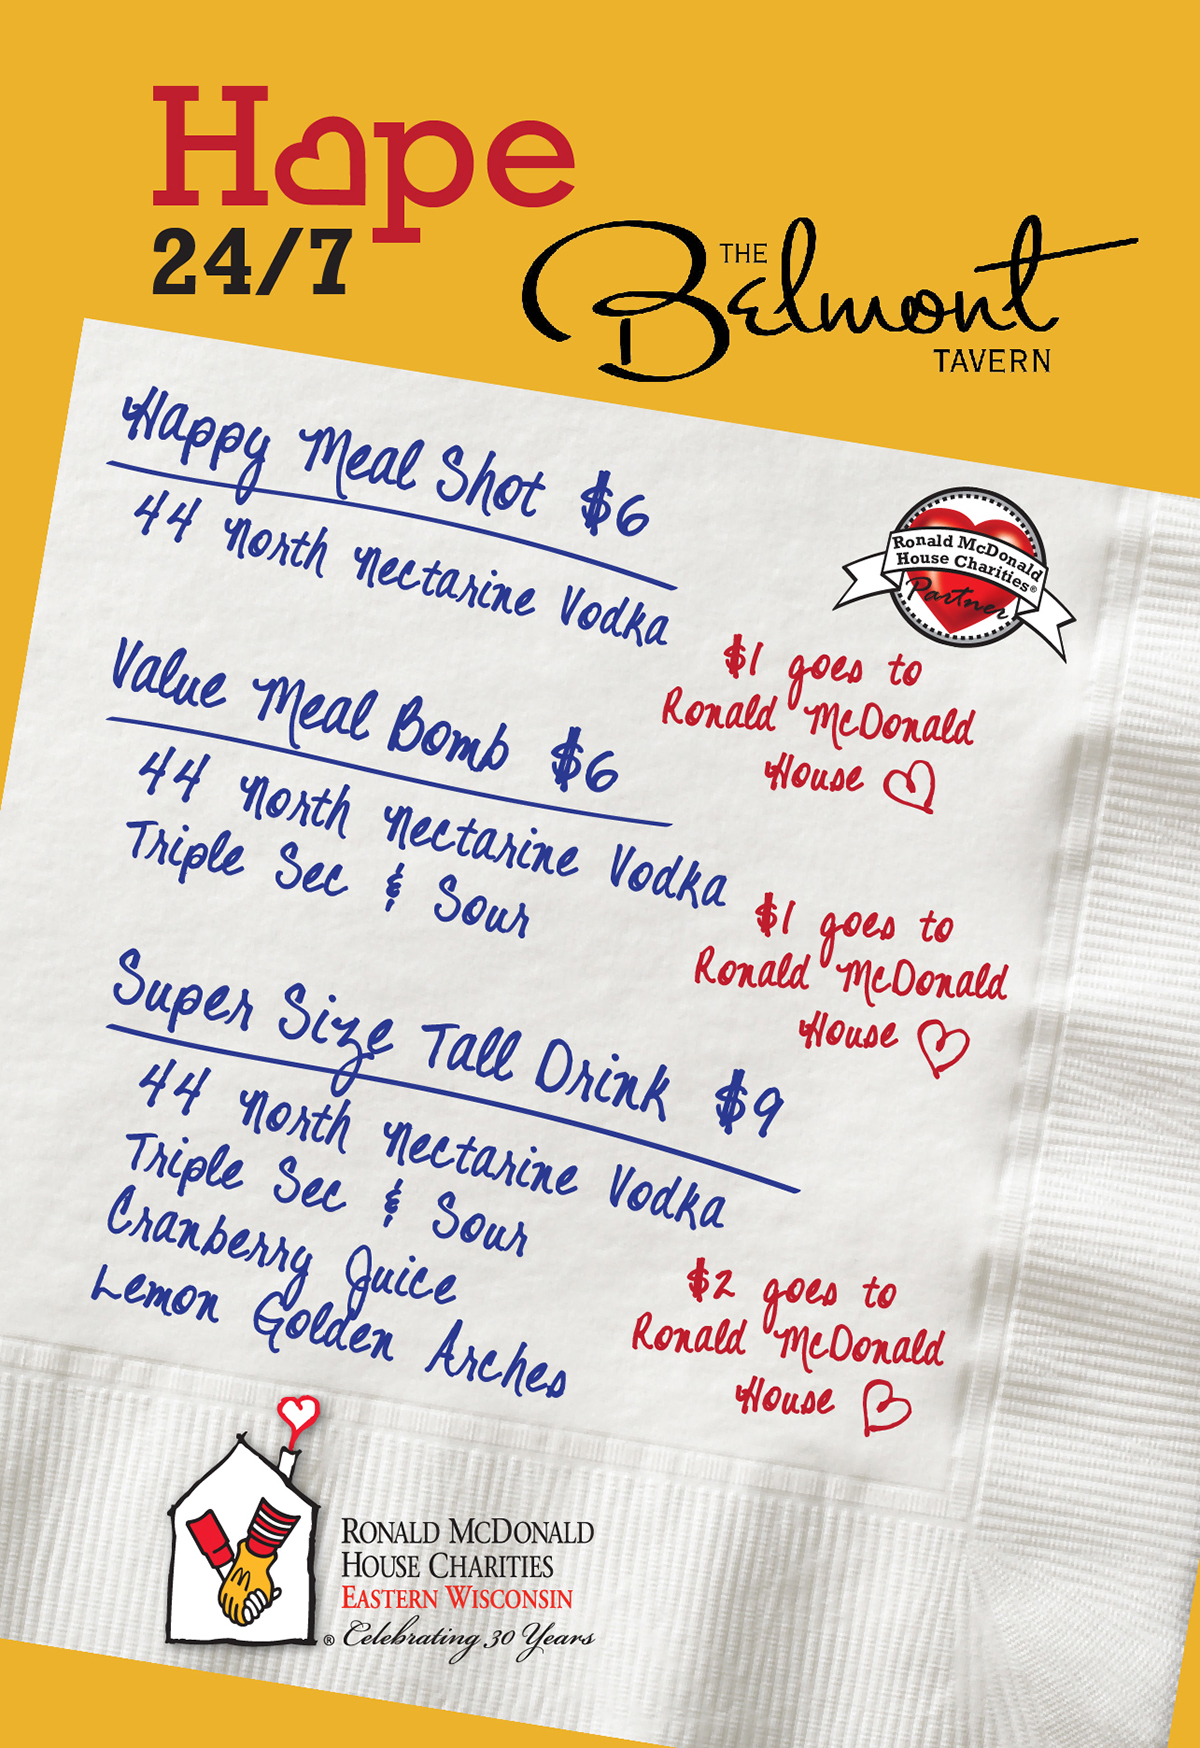 Hope
24/7
THE
Belmont
TAVERN
Happy Meal Shot $6
44 North Nectarine Vodka
Ronald McDonald
House Charities®
Partner
$1 goes to
Ronald McDonald
House
Value Meal Bomb $6
44 North Nectarine Vodka
Triple Sec & Sour
$1 goes to
Ronald McDonald
House
Super Size Tall Drink $9
44 North Nectarine Vodka
Triple Sec & Sour
Cranberry Juice
Lemon Golden Arches
$2 goes to
Ronald McDonald
House
RONALD MCDONALD
HOUSE CHARITIES
EASTERN WISCONSIN
® Celebrating 30 Years